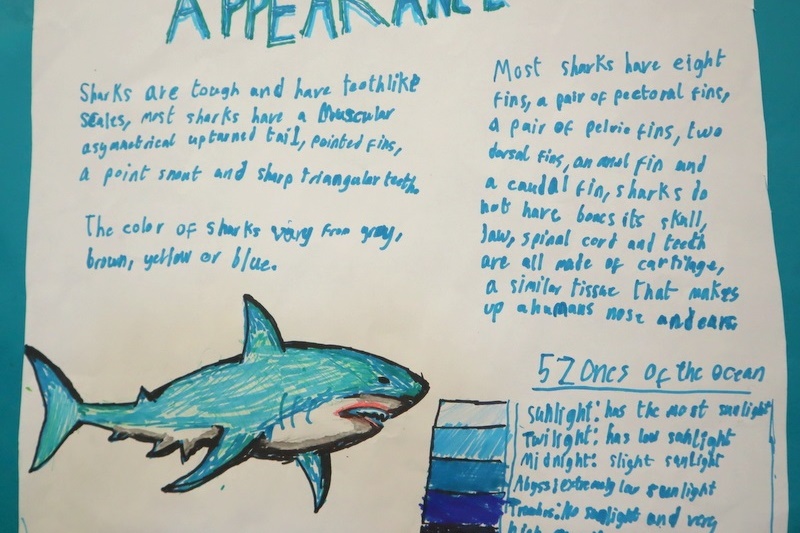 APPEARANCE
Sharks are tough and have toothlike
scales, most sharks have a Muscular
asymmetrical upturned tail, pointed fins,
a point snout and sharp triangular teeth.
The color of sharks vary from gray,
brown, yellow or blue.
Most sharks have eight
fins, a pair of pectoral fins,
a pair of pelvic fins, two
dorsal fins, an anal fin and
a caudal fin, sharks do
not have bones its skull,
Jaw, spinal cord and teeth
are all made of cartilage,
a similar tissue that makes
up a humans nose and ears
5 Zones of the ocean
Sunlight: has the most sunlight
Twilight: has low sunlight
Midnight: slight sunlight
Abyss: extremly low sunlight
No sunlight and very
high